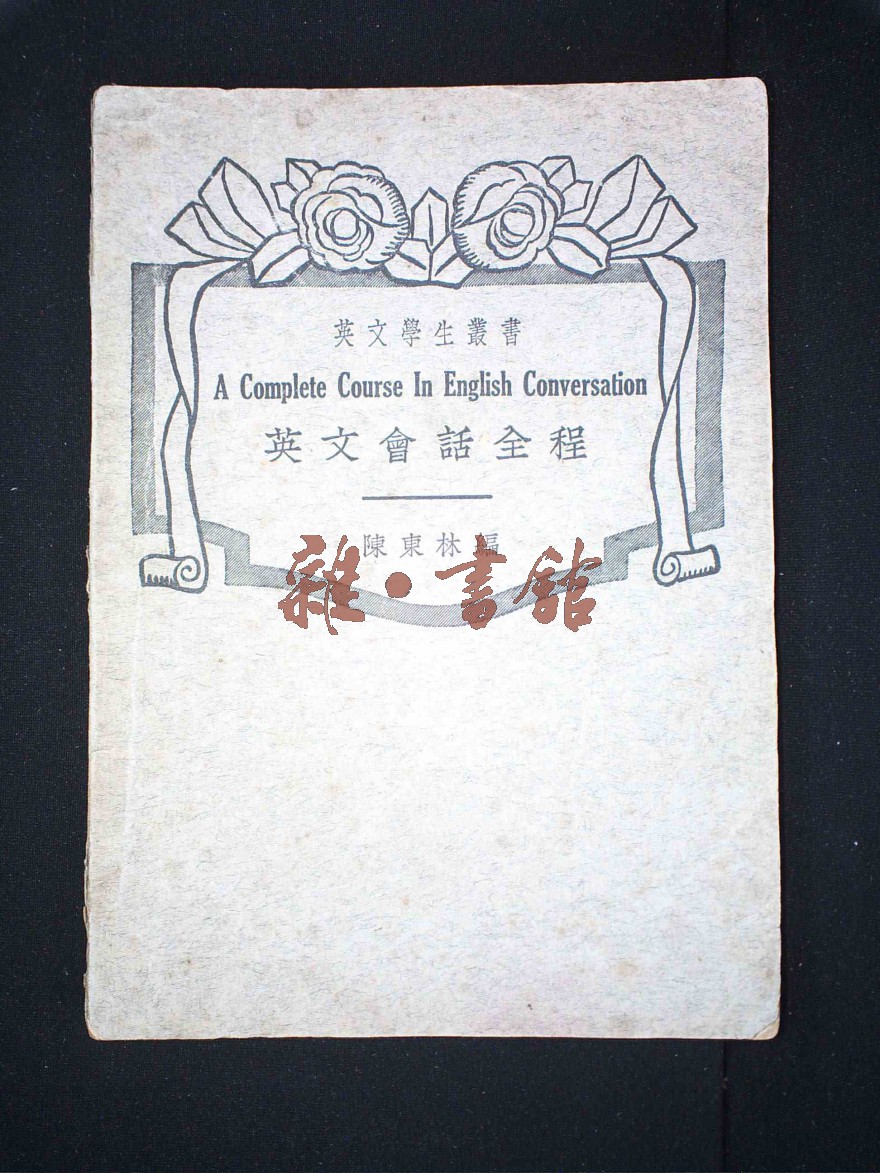 英文學生叢書
A Complete Course In English Conversation
英文會話全程
陳東林編
雜·書館